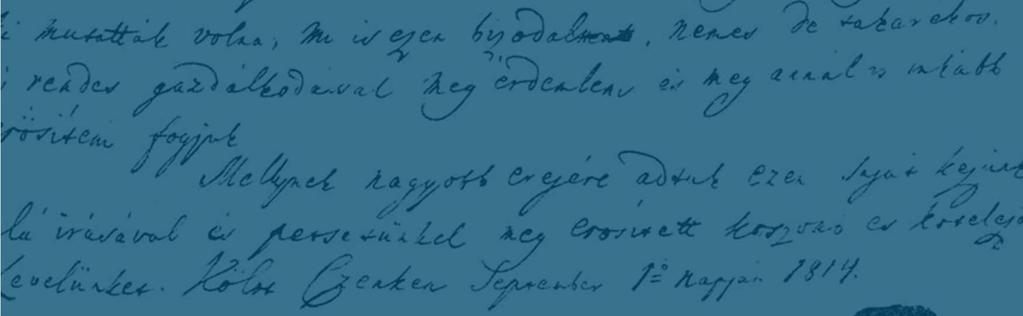 mutatták volna, mi is ezen bizodalmat, nemes de takarékos.
rendes gazdálkodásával meg érdemleni és meg annál is inkább
erősíteni fogjuk
Mellynek nagyobb erejére adtuk ezen saját kezünk
alá írásával és petsétünkel meg erősített köszönő és kötelező
Levelünket. Költ Czenken September 1ő Napján 1814.